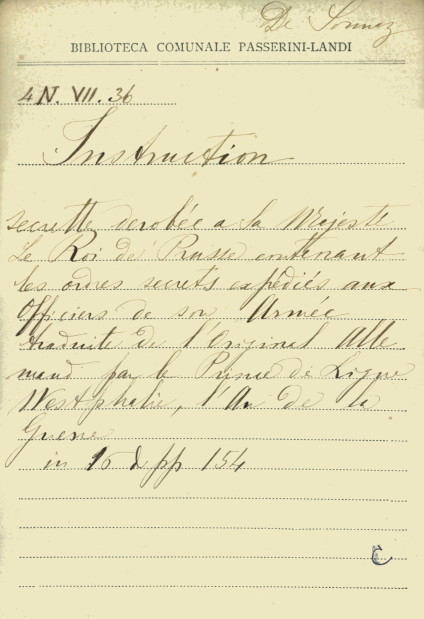 De
BIBLIOTECA COMUNALE PASSERINI-LANDI
4 N. VII. 36
Instruction
secrette derobée a Sa Majesté
Le Roi de Prusse contenant
les ordres secrets expédiés aux
Officiers de son Armée
traduite de l'Original Alle
mand par le Prince de Ligne
Westphalie, l'An de la
Guerre
in 16 pp 154
C